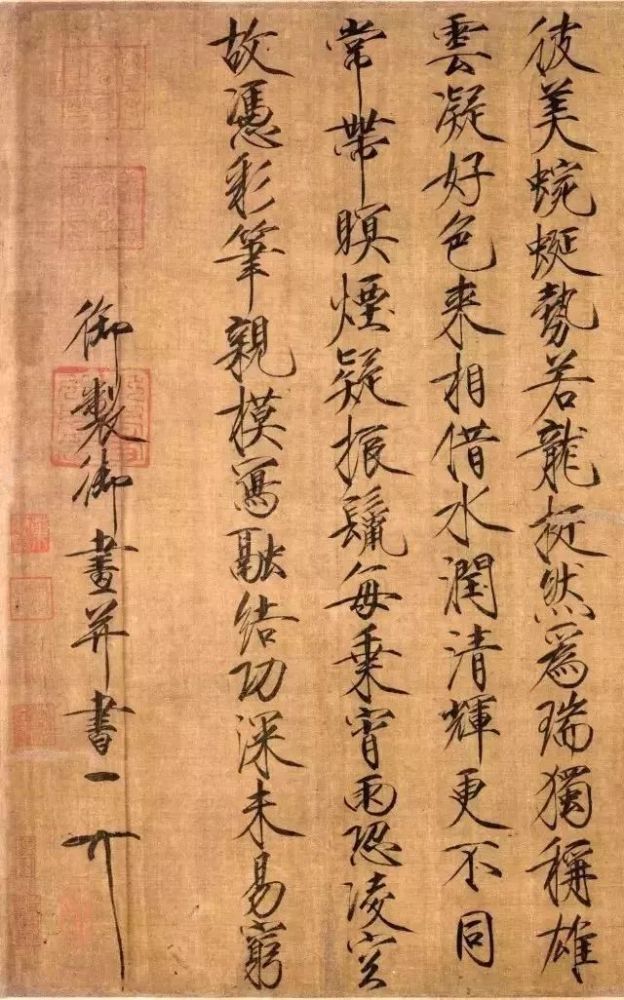 彼美蜿蜒勢若龍挺然爲瑞獨稱雄
雲凝好色来相借水潤清輝更不同
常帶瞑煙疑振鬣每乗宵雨恐凌空
故憑彩筆親模寫融结功深未易窮
御製御畫并書